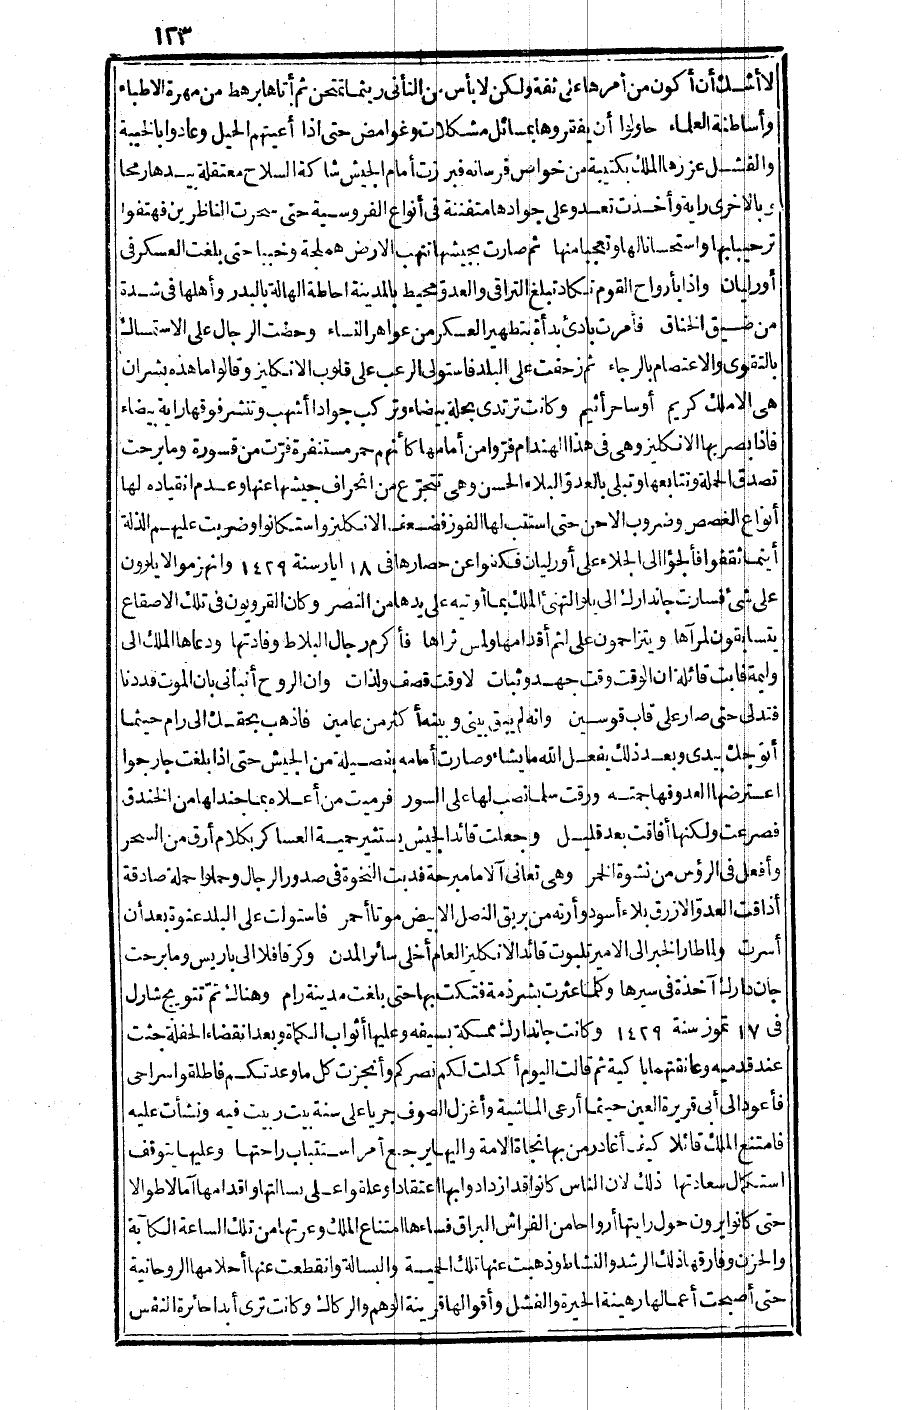 ١٢٣
لا أشك أن أكون من أمرها على ثقة ولكن لا بأس من التأني ريثما تمتحن ثم أتاها برهط من مهرة الاطباء
وأساطنة العلماء حاولوا أن يفقروها بمسائل مشكلات وغوامض حتى اذا أعيتهم الحيل وعادوا بالخيبة
والفشل عززها الملك بكتيبة من خواص فرسانه فبرزت أمام الجيش شاكة السلاح معتقلة بيدها رمحا
وبالاخرى راية وأخذت تعدو على جوادها متفننة في أنواع الفروسية حتى سحرت الناظرين فهتفوا
ترحيبا بها واستحسانا لها وتعجبا منها ثم صارت بجيشها تنتهب الارض هملجة وخببا حتى بلغت العسكر في
أورليان واذا بأرواح القوم تكاد تبلغ التراقي والعدو محيط بالمدينة احاطة الهالة بالبدر وأهلها في شدة
من ضيق الخناق فأمرت بادئ بدأة بتطهير العسكر من عواهر النساء وحضت الرجال على الاستمساك
بالتقوى والاعتصام بالرجاء ثم زحفت على البلد فاستولى الرعب على قلوب الانكليز وقالوا ما هذه بشر ان
هي الا ملك كريم أو ساحر أثيم وكانت ترتدي بحلة بيضاء وتركب جوادا أشهب وتنشر فوقها راية بيضاء
فاذا بصر بها الانكليز وهي في هذا الهندام فروا من أمامها كأنهم حمر مستنفرة فرت من قسورة وما برحت
تصدق الحملة وتتابعها وتبلي بالعدو البلاء الحسن وهي تتجرع من انحراف جيشها عنها وعدم انقياده لها
أنواع الغصص وضروب الاحن حتى استتب لها الفوز فضعف الانكليز واستكانوا وضربت عليهم الذلة
أينما ثقفوا فألجؤا الى الجلاء على أورليان فكفوا عن حصارها في ١٨ ايار سنة ١٤٢٩ وانهزموا لا يلوون
على شئ فسارت جاندارك الى بلوا لتهنئ الملك بما أوتيه على يدها من النصر وكان القرويون في تلك الاصقاع
يتسابقون لمرآها ويتزاحمون على لثم أقدامها ولمس ثراها فأكرم رجال البلاط وفادتها ودعاها الملك الى
وليمة فابت قائلة ان الوقت وقت جهد وثبات لا وقت قصف ولذات وان الروح أنبأني بان الموت قد دنا
فتدلى حتى صار على قاب قوسين وانه لم يبق بيني وبينه أكثر من عامين فاذهب بحقك الى رام حيثما
أتوجك بيدي وبعد ذلك يفعل الله ما يشاء وصارت أمامه بفصيلة من الجيش حتى اذا بلغت جارجوا
اعترضها العدو فهاجمته ورقت سلما نصب لها على السور فرميت من أعلاه بما جندلها من الخندق
فصرعت ولكنها أفاقت بعد قليل وجعلت قائد الجيش يستثير حمية العساكر بكلام أرق من السحر
وأفعل في الرؤس من نشوة الخمر وهي تعاني آلاما مبرحة فدبت النخوة في صدور الرجال وحملوا حملة صادقة
أذاقت العدو الازرق بلاء أسود وأرته من بريق النصل الابيض موتا أحمر فاستولت على البلد عنوة بعد أن
أسرت ولما طار الخبر الى الامير تلبوت قائد الانكليز العام أخلى سائر المدن وكر قافلا الى باريس وما برحت
جان دارك آخذة في سيرها وكلما عثرت بشرذمة فتكت بها حتى بلغت مدينة رام وهناك تم تتويج شارل
في ١٧ تموز سنة ١٤٢٩ وكانت جاندارك ممسكة بسيفه وعليها أثواب الكماة وبعد انقضاء الحفلة جثت
عند قدميه وعانقتهما باكية ثم قالت اليوم أكملت لكم نصركم وأنجزت كل ما وعدتكم فاطلقوا سراحي
فأعود الى أبي قريرة العين حيثما أرعى الماشية وأغزل الصوف جريا على سنة بيت ربيت فيه ونشأت عليه
فامتنع الملك قائلا كيف أغادر من بها نجاة الامة واليها يرجع أمر استتباب راحتها وعليها يتوقف
استكمال سعادتها ذلك لان الناس كانوا قد ازدادوا بها اعتقادا وعلقوا على بسالتها واقدامها آمالا طوالا
حتى كانوا يرون حول رايتها أرواحا من الفراش البراق فساءها امتناع الملك وعرتها من تلك الساعة الكآبة
والحزن وفارقها ذلك الرشد والنشاط وذهبت عنها تلك الحميسة والبسالة وانقطعت عنها أحلامها الروحانية
حتى أصبحت أعمالها رهينة الحيرة والفشل وأقوالها قرينة الوهم والركاك وكانت ترى أبدا حائرة النفس